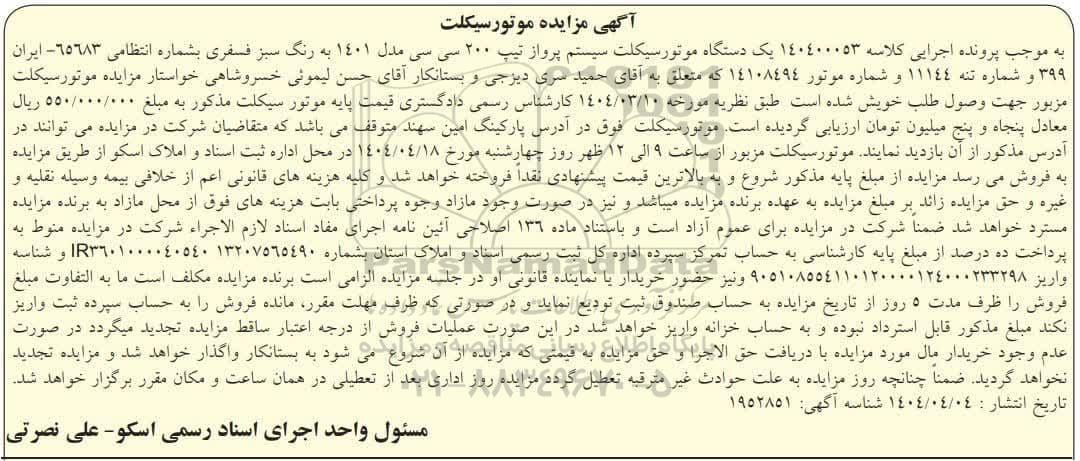 آگهی مزایده موتورسیکلت
به موجب پرونده اجرایی کلاسه ۱۴۰۴۰۰۰۵۳ یک دستگاه موتورسیکلت سیستم پرواز تیپ ۲۰۰ سی سی مدل ۱۴۰۱ به رنگ سبز فسفری بشماره انتظامی ۶۵۶۸۳- ایران
۳۹۹ و شماره تنه ۱۱۱۴۴ و شماره موتور ۱۴۱۰۸۴۹۴ که متعلق به آقای حمید حری دیزجی و بستانکار آقای حسن لیموئی خسروشاهی خواستار مزایده موتورسیکلت
مزبور جهت وصول طلب خویش شده است طبق نظریه مورخه ۱۴۰۴/۰۳/۱۰ کارشناس رسمی دادگستری قیمت پایه موتور سیکلت مذکور به مبلغ ۵۵۰/۰۰۰/۰۰۰ ریال
معادل پنجاه و پنج میلیون تومان ارزیابی گردیده است. موتورسیکلت فوق در آدرس پارکینگ امین سهند متوقف می باشد که متقاضیان شرکت در مزایده می توانند در
آدرس مذکور از آن بازدید نمایند. موتورسیکلت مزبور از ساعت ۹ الی ۱۲ ظهر روز چهارشنبه مورخ ۱۴۰۴/۰۴/۱۸ در محل اداره ثبت اسناد و املاک اسکو از طریق مزایده
به فروش می رسد مزایده از مبلغ پایه مذکور شروع و به بالاترین قیمت پیشنهادی نقداً فروخته خواهد شد و کلیه هزینه های قانونی اعم از خلافی بیمه وسیله نقلیه و
غیره و حق مزایده زائد بر مبلغ مزایده به عهده برنده مزایده میباشد و نیز در صورت وجود مازاد وجوه پرداختی بابت هزینه های فوق از محل مازاد به برنده مزایده
مسترد خواهد شد ضمناً شرکت در مزایده برای عموم آزاد است و باستناد ماده ۱۳۶ اصلاحی آئین نامه اجرای مفاد اسناد لازم الاجراء شرکت در مزایده منوط به
پرداخت ده درصد از مبلغ پایه کارشناسی به حساب تمرکز سپرده اداره کل ثبت رسمی اسناد و املاک استان بشماره IR۳۶۰۱۰۰۰۰۴۰۵۴۰ ۱۳۲۰۷۵۶۵۴۹۰ و شناسه
واریز ۹۰۵۱۰۸۵۵۴۱۱۰۱۲۰۰۰۰۱۲۴۰۰۰۲۳۳۲۹۸ ونیز حضور خریدار یا نماینده قانونی او در جلسه مزایده الزامی است برنده مزایده مکلف است ما به التفاوت مبلغ
فروش را ظرف مدت ۵ روز از تاریخ مزایده به حساب صندوق ثبت تودیع نماید و در صورتی که ظرف مهلت مقرر، مانده فروش را به حساب سپرده ثبت واریز
نکند مبلغ مذکور قابل استرداد نبوده و به حساب خزانه واریز خواهد شد در این صورت عملیات فروش از درجه اعتبار ساقط مزایده تجدید میگردد در صورت
عدم وجود خریدار مال مورد مزایده با دریافت حق الاجرا و حق مزایده به قیمتی که مزایده از آن شروع می شود به بستانکار واگذار خواهد شد و مزایده تجدید
نخواهد گردید. ضمناً چنانچه روز مزایده به علت حوادث غیر مترقبه تعطیل گردد مزایده روز اداری بعد از تعطیلی در همان ساعت و مکان مقرر برگزار خواهد شد.
تاریخ انتشار : ۱۴۰۴/۰۴/۰۴ شناسه آگهی: ۱۹۵۲۸۵۱
مسئول واحد اجرای اسناد رسمی اسکو- علی نصرتی
ParsNamadData
پایگاه اطلاع رسانی مناقصه و مزایده
۰۲۱-۸۸۳۴۹۶۷۰-۵